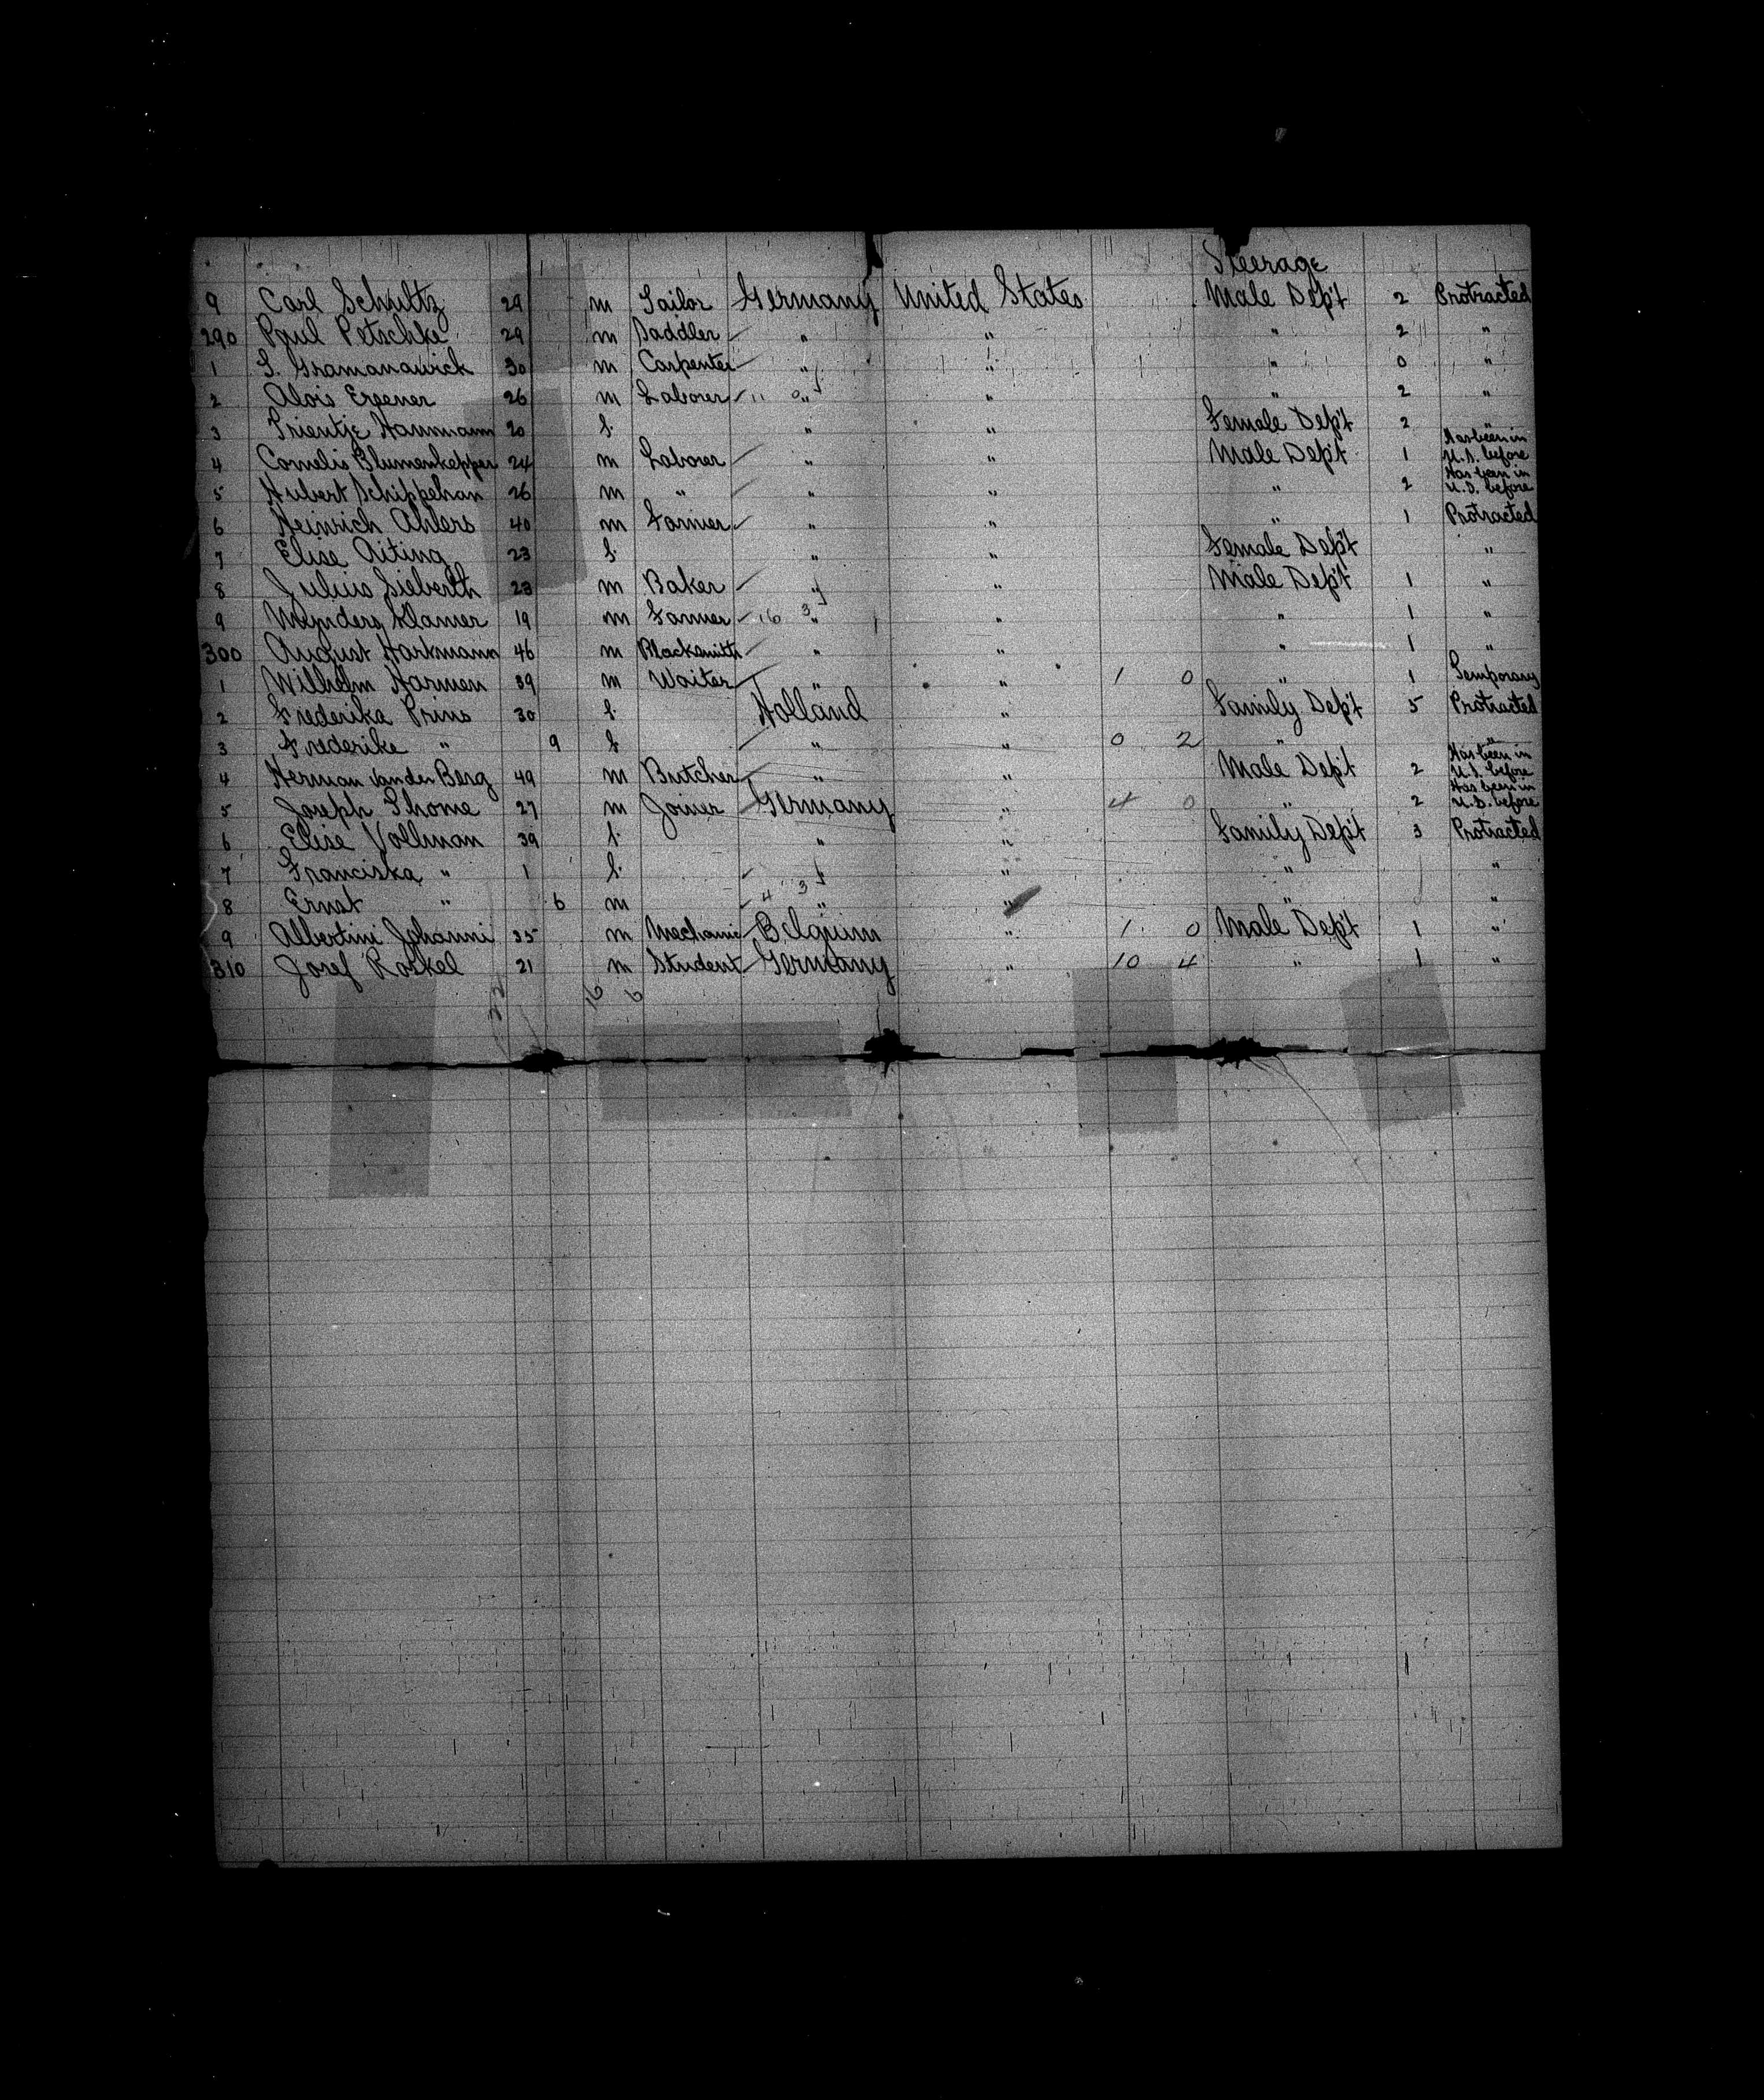 Steerage
9 Carl Schultz 29 m Tailor Germany United States Male Dep't 2 Protracted
290 Paul Petschke 29 m Saddler " " " 2 "
1 30 m Carpenter " " " 0 "
2 Alois 26 m Laborer " " " 2 "
3 Trientje Hausmann 20 f. " " Female Dep't 2 "
4 Cornelis Blumenkepper 24 m Laborer " " Male Dep't 1 Has been in U.S. before
5 Hubert Schippehan 26 m " " " " 2 Has been in U.S. before
6 Heinrich Ahlers 40 m Farmer " " " 1 Protracted
7 Elise Aiting 23 f. " " Female Dep't "
8 Julius Sieberth 23 m Baker " " Male Dep't 1 "
9 Klamer 19 m Farmer 16 3 " " " 1 "
300 August Harkmann 46 m Blacksmith " " " 1 "
1 Wilhelm Harmen 39 m Waiter " " 1 0 " 1 Temporary
2 Frederika Prins 30 f. Holland " Family Dep't 5 Protracted
3 Frederike " 9 f " " 0 2 " "
4 Herman Van den Berg 49 m Butcher " " Male Dep't 2 Has been in U.S. before
5 Joseph Thome 27 m Joiner Germany " 4 0 " 2 Has been in U.S. before
6 Elise Vollman 39 f. " " Family Dep't 3 Protracted
7 Franciska " 1 f. " " " "
8 Ernst " 6 m 4 3 " " " "
9 Albertini Johanni 35 m Mechanic Belgium " 1 0 Male Dep't 1 "
310 Josef Roskel 21 m Student Germany " 10 4 " 1 "
22 16 6